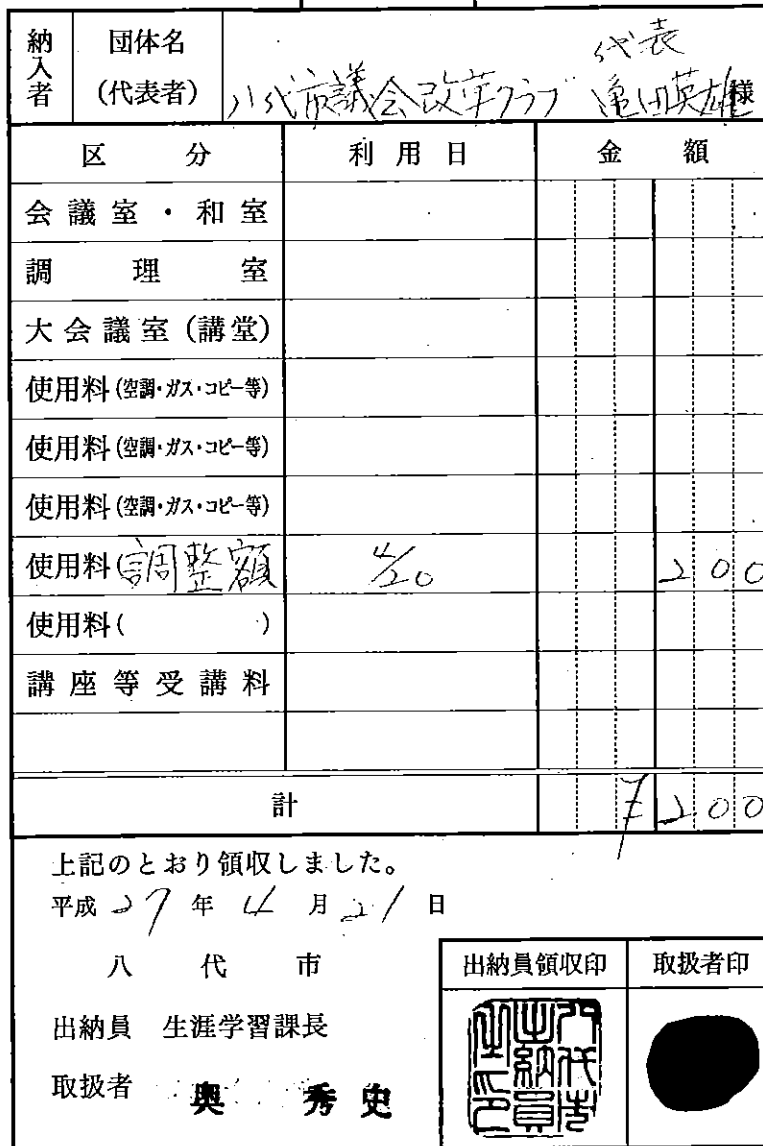 納入者 団体名(代表者) 八代市議会改革クラブ 代表 亀田英雄様
区分 利用日 金額
会議室・和室
調理室
大会議室(講堂)
使用料(空調・ガス・コピー等)
使用料(空調・ガス・コピー等)
使用料(空調・ガス・コピー等)
使用料(調整額 4/20 200
使用料( )
講座等受講料
計 ¥200
上記のとおり領収しました。
平成27年4月21日
八代市
出納員領収印 取扱者印
出納員 生涯学習課長
取扱者 奥秀史
八代市出納員之印